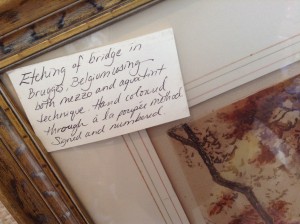 Etching of bridge in
Bruggs, Belgium using
both mezzo and aquatint
technique Hand coloured
through à la poupée method
Signed and numbered